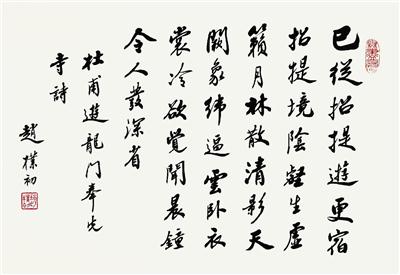 已從招提遊更宿
招提境陰壑生虛
籟月林散清影天
闕象緯逼雲臥衣
裳冷欲覺聞晨鐘
令人發深省
杜甫遊龍門奉先
寺詩
趙樸初